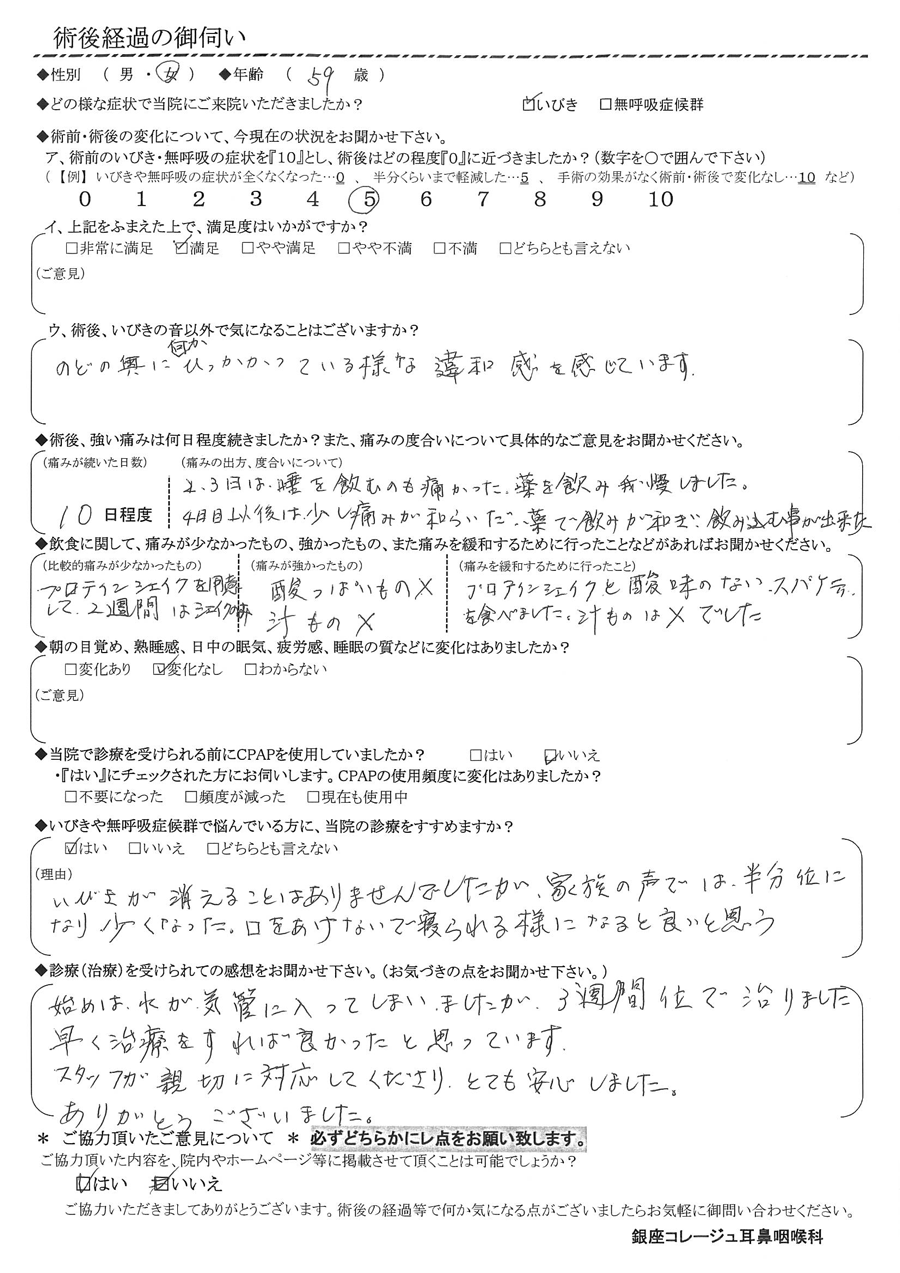 術後経過の御伺い
◆性別 （ 男 ・ 女 ） ◆年齢 （ 59 歳 ）
◆どの様な症状で当院にご来院いただきましたか？ ☑いびき □無呼吸症候群
◆術前・術後の変化について、今現在の状況をお聞かせ下さい。
ア、術前のいびき・無呼吸の症状を『10』とし、術後はどの程度『0』に近づきましたか？（数字を〇で囲んで下さい）
（ 【例】 いびきや無呼吸の症状が全くなくなった…0 、 半分くらいまで軽減した…5 、 手術の効果がなく術前・術後で変化なし…10 など）
0 1 2 3 4 5 6 7 8 9 10
イ、上記をふまえた上で、満足度はいかがですか？
□非常に満足 ☑満足 □やや満足 □やや不満 □不満 □どちらとも言えない
（ご意見）
ウ、術後、いびきの音以外で気になることはございますか？
のどの奥に何かひっかかっている様な違和感を感じています。
◆術後、強い痛みは何日程度続きましたか？また、痛みの度合いについて具体的なご意見をお聞かせください。
（痛みが続いた日数） （痛みの出方、度合いについて）
2、3日は、唾を飲むのも痛かった。薬を飲み我慢しました。
10 日程度 4日目以後は少し痛みが和らいだ、薬で飲みが和ぎ、飲み込む事が出来た
◆飲食に関して、痛みが少なかったもの、強かったもの、また痛みを緩和するために行ったことなどがあればお聞かせください。
（比較的痛みが少なかったもの） （痛みが強かったもの） （痛みを緩和するために行ったこと）
プロテインシェイクを用意 酸っぱいもの× プロテインシェイクと酸味のないスパゲティ
して、2週間はシェイクのみ 汁もの× を食べました。汁ものは×でした
◆朝の目覚め、熟睡感、日中の眠気、疲労感、睡眠の質などに変化はありましたか？
□変化あり ☑変化なし □わからない
（ご意見）
◆当院で診療を受けられる前にCPAPを使用していましたか？ □はい ☑いいえ
・『はい』にチェックされた方にお伺いします。CPAPの使用頻度に変化はありましたか？
□不要になった □頻度が減った □現在も使用中
◆いびきや無呼吸症候群で悩んでいる方に、当院の診療をすすめますか？
☑はい □いいえ □どちらとも言えない
（理由）
いびきが消えることはありませんでしたが、家族の声では、半分位に
なり少くなった。口をあけないで寝られる様になると良いと思う
◆診療（治療）を受けられての感想をお聞かせ下さい。（お気づきの点をお聞かせ下さい。）
始めは、水が気管に入ってしまいましたが、3週間位で治りました
早く治療をすれば良かったと思っています。
スタッフが親切に対応してくださり、とても安心しました。
ありがとうございました。
＊ ご協力頂いたご意見について ＊ 必ずどちらかにレ点をお願い致します。
ご協力頂いた内容を、院内やホームページ等に掲載させて頂くことは可能でしょうか？
☑はい ☑いいえ
ご協力いただきましてありがとうございます。術後の経過等で何か気になる点がございましたらお気軽に御問い合わせください。
銀座コレージュ耳鼻咽喉科